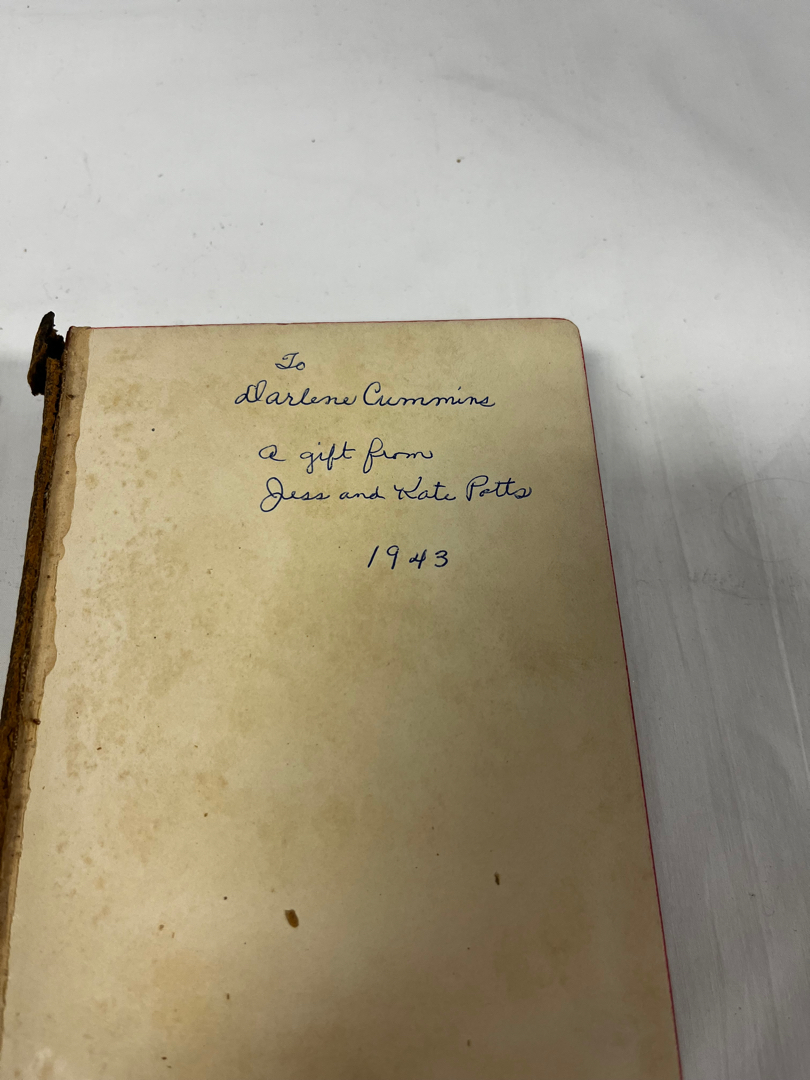 To
Darlene Cummins
a gift from
Jess and Kate Potts
1943